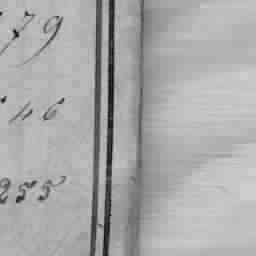 79
46
255